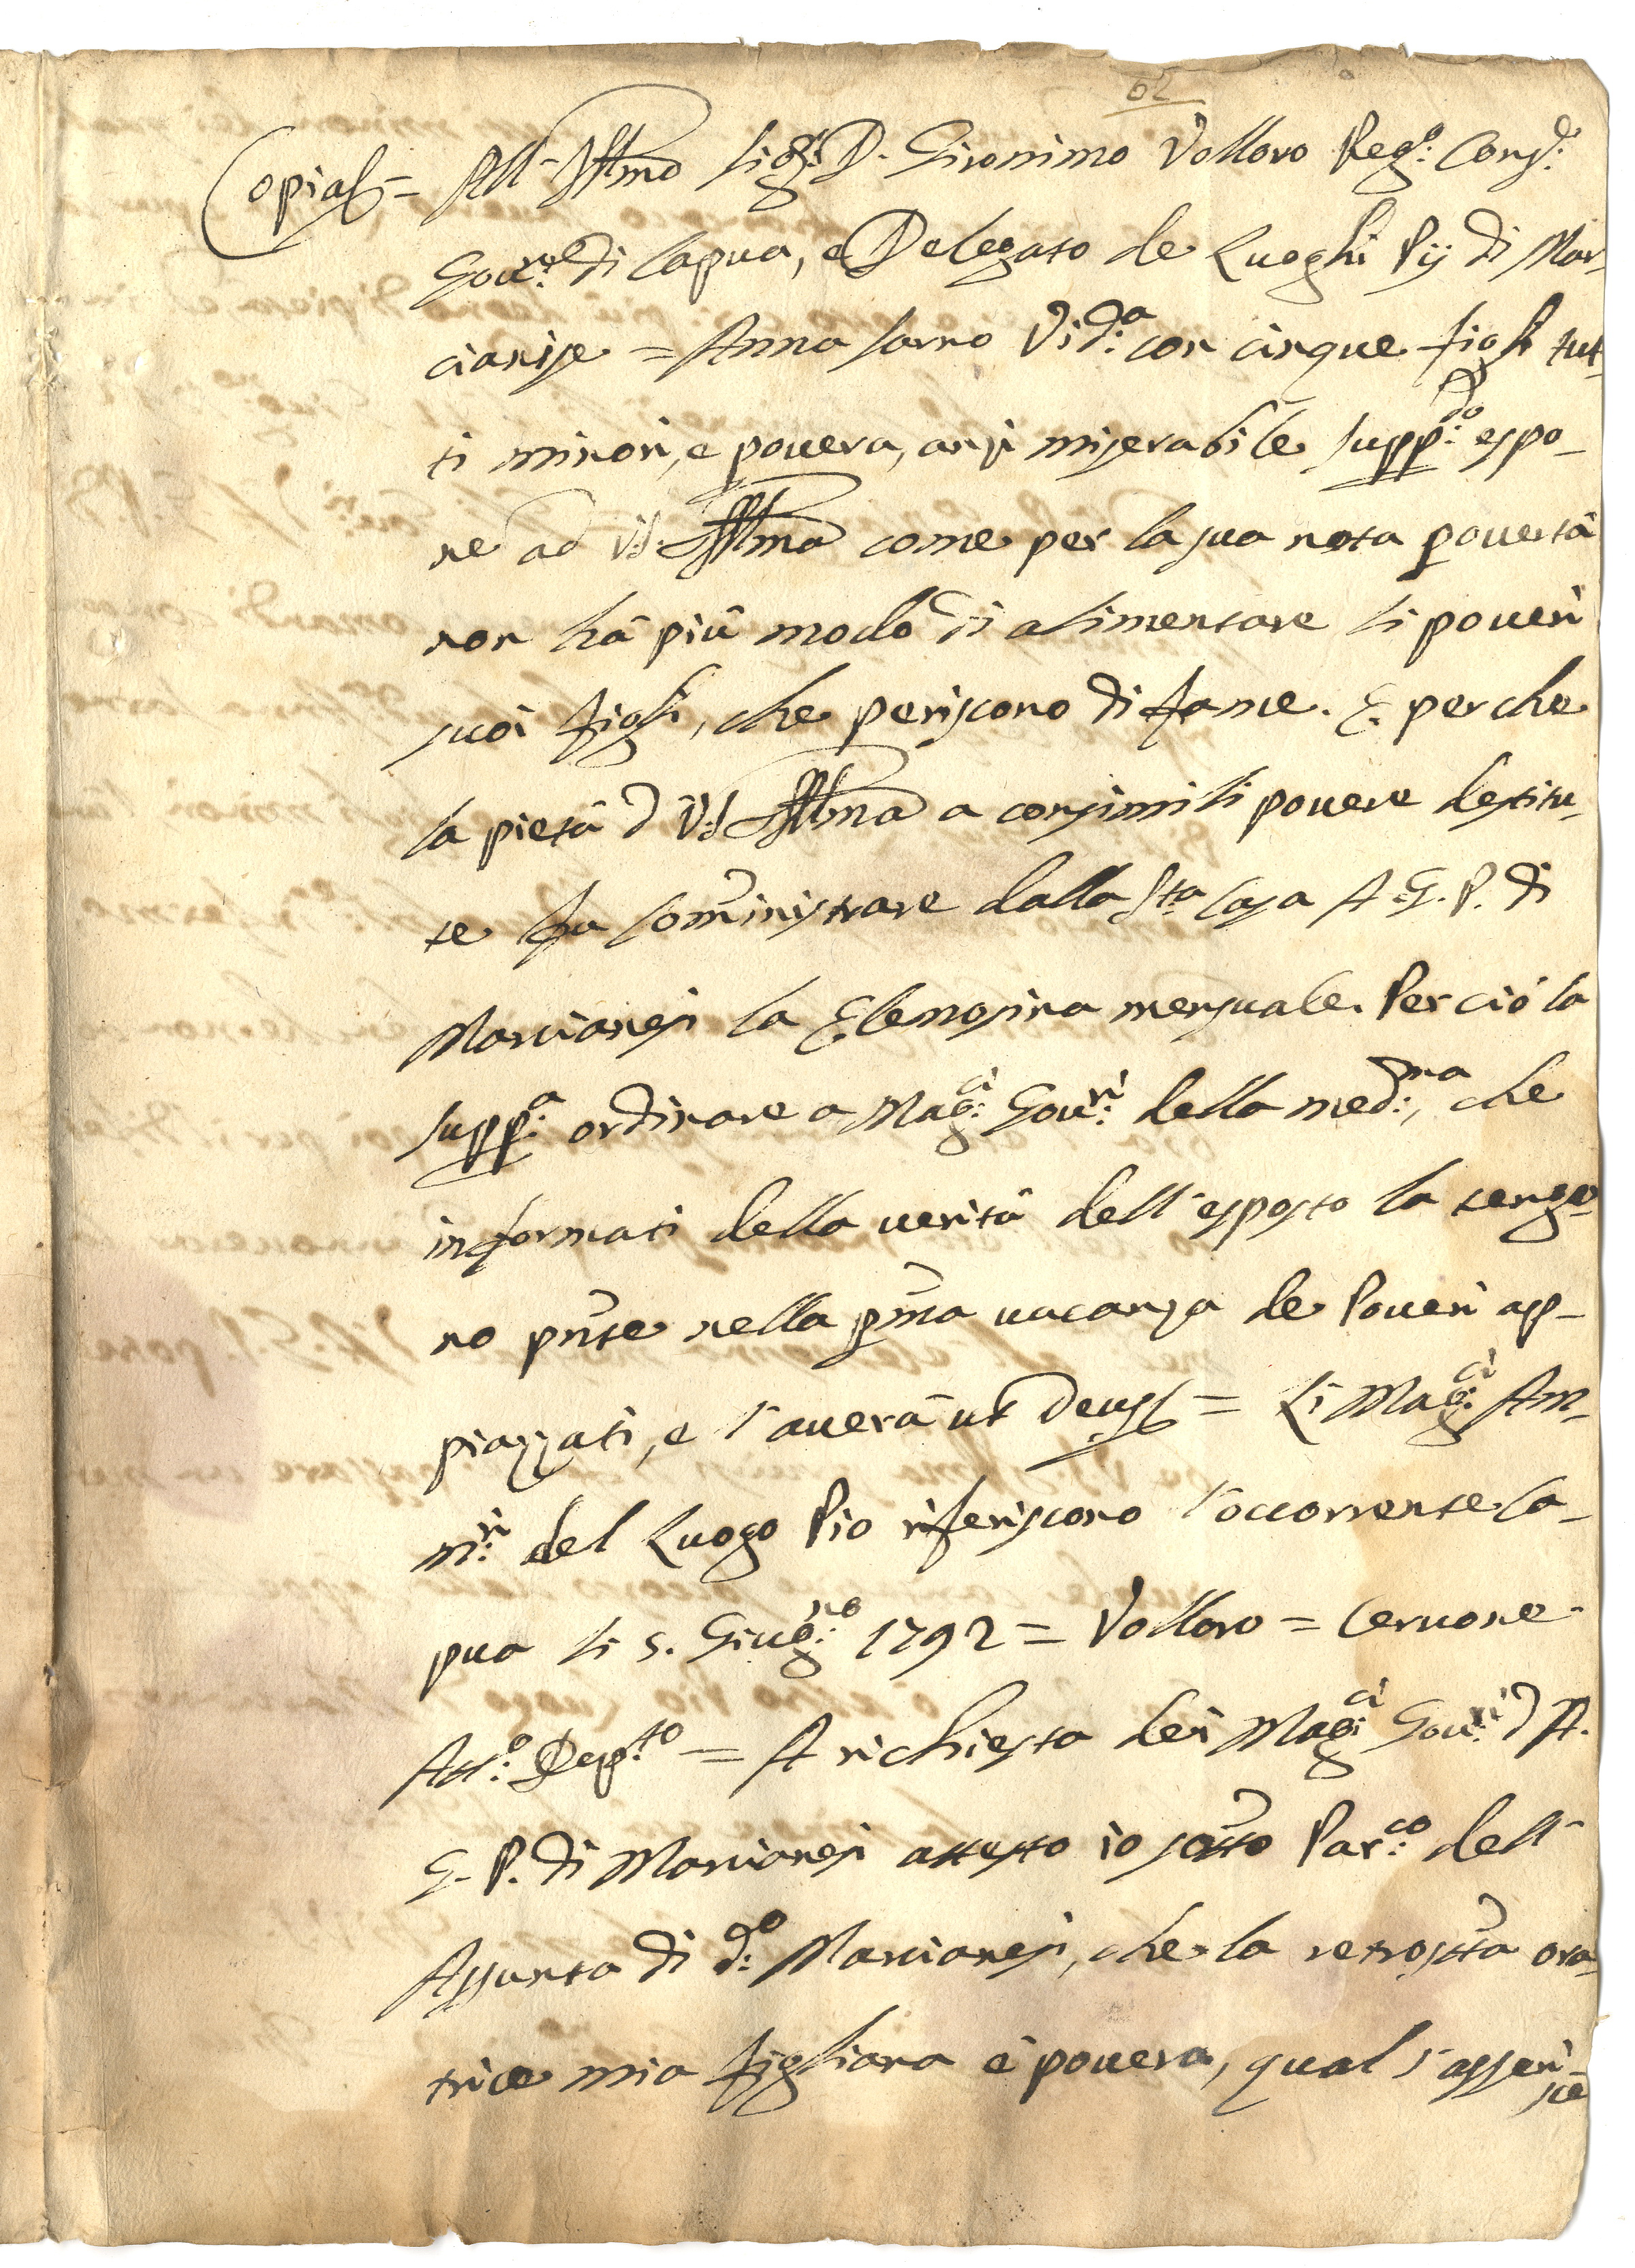 62
Copia = All' Ill.mo Sig.r D. Gironimo Vollaro Reg.o Cons.o
Gov.re di Capua, e Delegato de Luoghi Pij di Mar-
cianise = Anna Sarno Vid.a con cinque figli tut-
ti minori, e povera, anzi miserabile supp.do espo-
ne ad V.S. Ill.ma come per la sua nota povertà
non hà più modo di alimentare li poveri
suoi figli, che periscono di fame. E perche
la pietà d V.S. Ill.ma a consimili povere destitu-
te fa somministrare dalla S.ta Casa A. G. P. di
Marcianesi la Elemosina mensuale. Perciò la
supp.a ordinare a Mag.ci Gov.ri della med.ma, che
informati della verità dell'esposto la tengo-
no pnte nella pma vacanza de Poveri ap-
piazzati, e l'averà ut Deus = Li Mag.ci Am-
m.ri del Luogo Pio riferiscono l'occorrente Ca-
pua li 5. Giug.no 1792 = Vollaro = Cervone
Att.o Dep.to = A richiesta dei Mag.ci Gov.ri d A.
G. P. di Marcianesi attesto io sotto Par.co dell'
Assunta di d.o Marcianesi, che la retrostta ora-
trice mia figliana è povera, qual s'asseri-
sce